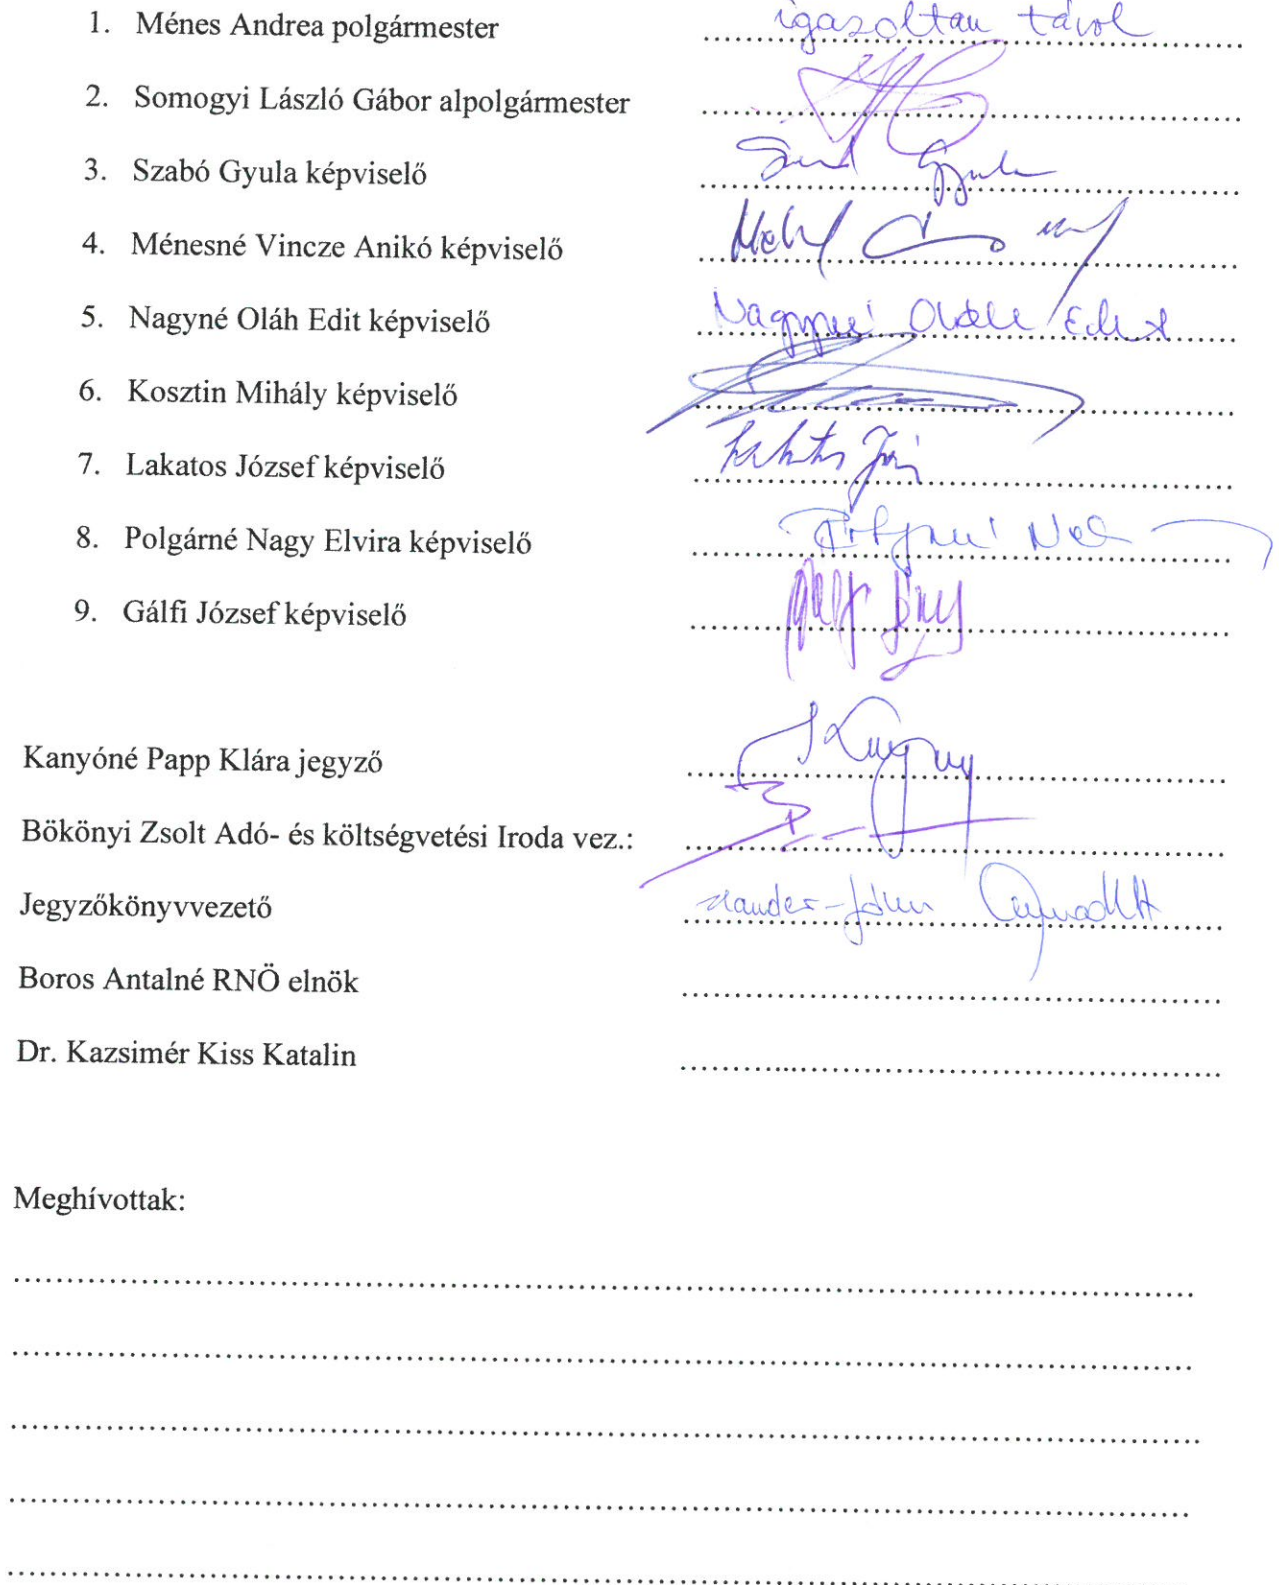 1. Ménes Andrea polgármester igazoltan távol
2. Somogyi László Gábor alpolgármester
3. Szabó Gyula képviselő Szabó Gyula
4. Ménesné Vincze Anikó képviselő
5. Nagyné Oláh Edit képviselő Nagyné Oláh Edit
6. Kosztin Mihály képviselő
7. Lakatos József képviselő Lakatos
8. Polgárné Nagy Elvira képviselő Polgárné
9. Gálfi József képviselő
Kanyóné Papp Klára jegyző
Bökönyi Zsolt Adó- és költségvetési Iroda vez.:
Jegyzőkönyvvezető
Boros Antalné RNÖ elnök
Dr. Kazsimér Kiss Katalin
Meghívottak: